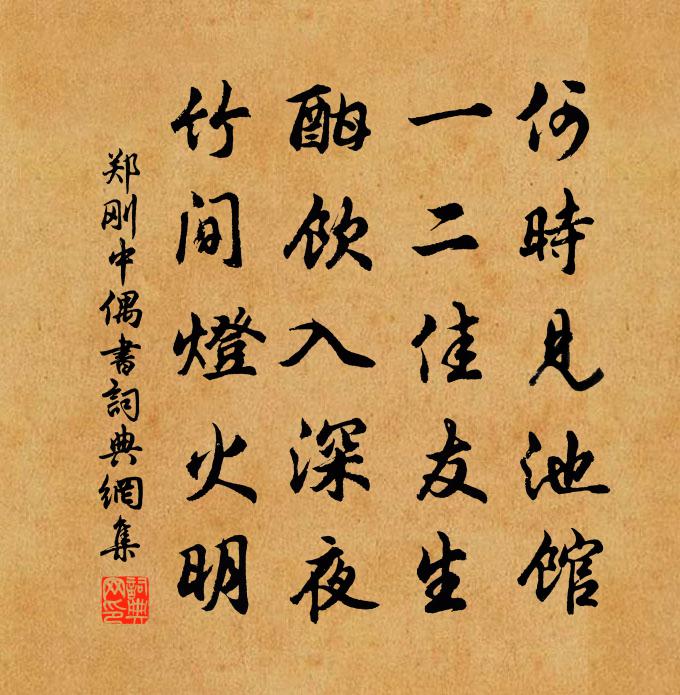 何時見池館
一二佳友生
酣飲入深夜
竹間燈火明
郑刚中偶書詞典網集
詞典網印